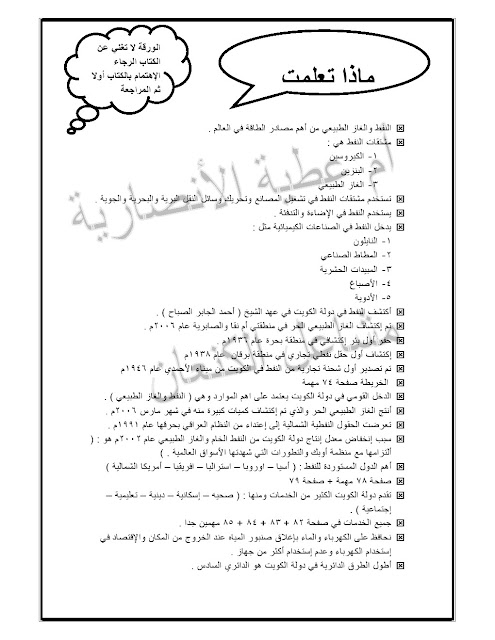 الورقة لا تغني عن
الكتاب الرجاء
الإهتمام بالكتاب أولا
ثم المراجعة
ماذا تعلمت
النفط والغاز الطبيعي من أهم مصادر الطاقة في العالم .
مشتقات النفط هي :
١- الكيروسين
٢- البنزين
٣- الغاز الطبيعي
تستخدم مشتقات النفط في تشغيل المصانع وتحريك وسائل النقل البرية والبحرية والجوية .
يستخدم النفط في الإضاءة والتدفئة .
يدخل النفط في الصناعات الكيميائية مثل :
١- النايلون
٢- المطاط الصناعي
٣- المبيدات الحشرية
٤- الأصباغ
٥- الأدوية
أكتشف النفط في دولة الكويت في عهد الشيخ ( أحمد الجابر الصباح ) .
تم إكتشاف الغاز الطبيعي الحر في منطقتي أم نقا والصابرية عام ٢٠٠٦م .
حفر أول بئر إكتشافي في منطقة بحرة عام ١٩٣٦م .
إكتشاف أول حقل نفطي تجاري في منطقة برقان عام ١٩٣٨م
تم تصدير أول شحنة تجارية من النفط في الكويت من ميناء الأحمدي عام ١٩٤٦م
الخريطة صفحة ٧٤ مهمة
الدخل القومي في دولة الكويت يعتمد على اهم الموارد وهي ( النفط والغاز الطبيعي ) .
أنتج الغاز الطبيعي الحر والذي تم إكتشاف كميات كبيرة منه في شهر مارس ٢٠٠٦م .
تعرضت الحقول النفطية الشمالية إلى إعتداء من النظام العراقي بحرقها عام ١٩٩١م .
سبب إنخفاض معدل إنتاج دولة الكويت من النفط الخام والغاز الطبيعي عام ٢٠٠٢م هو : (
ألتزامها مع منظمة أوبك والتطورات التي شهدتها الأسواق العالمية . )
أهم الدول المستوردة للنفط : ( أسيا – اوروبا – استراليا – افريقيا – أمريكا الشمالية )
صفحة ٧٨ مهمة + صفحة ٧٩
تقدم دولة الكويت الكثير من الخدمات ومنها : ( صحيه – إسكانية – دينية – تعليمية –
إجتماعية ) .
جميع الخدمات في صفحة ٨٢ + ٨٣ + ٨٤ + ٨٥ مهمين جدا .
نحافظ على الكهرباء والماء بإغلاق صنبور المياه عند الخروج من المكان والإقتصاد في
إستخدام الكهرباء وعدم إستخدام أكثر من جهاز .
أطول الطرق الدائرية في دولة الكويت هو الدائري السادس .
أم عطية الأنصارية